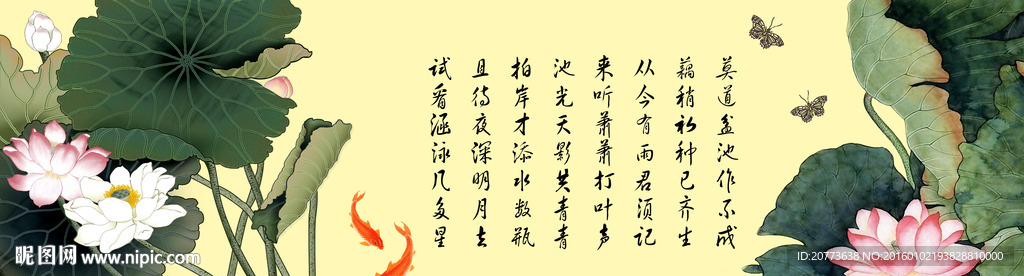 莫道盆池作不成
藕稍初种已齐生
从今有雨君须记
来听萧萧打叶声
池光天影共青青
拍岸才添水数瓶
且待夜深明月去
试看涵泳几多星
昵图网 www.nipic.com
ID:20773638 NO:20160102193828810000